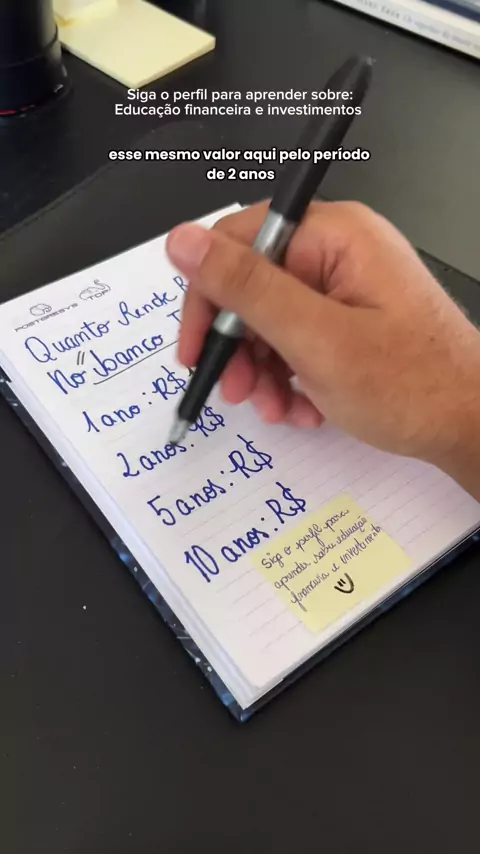 Siga o perfil para aprender sobre:
Educação financeira e investimentos
esse mesmo valor aqui pelo período
de 2 anos
POSTGRESYS TOP
Quanto Rende R
No "banco
1 ano: R$
2 anos: R$
5 anos: R$
10 anos: R$
Siga o perfil para
aprender sobre educação
financeira e investimento